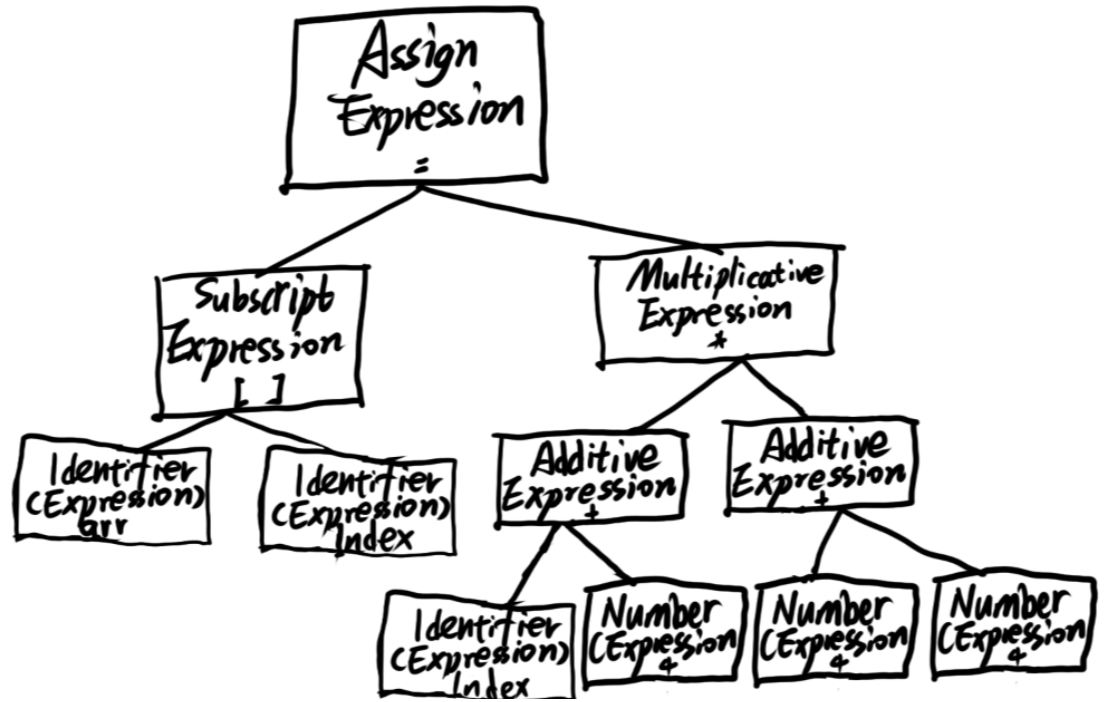 Assign
Expression
=
Subscript
Expression
[ ]
Multiplicative
Expression
*
Identifier
(Expression)
arr
Identifier
(Expression)
Index
Additive
Expression
+
Additive
Expression
+
Identifier
(Expression)
Index
Number
(Expression
4
Number
(Expression)
4
Number
(Expression
4